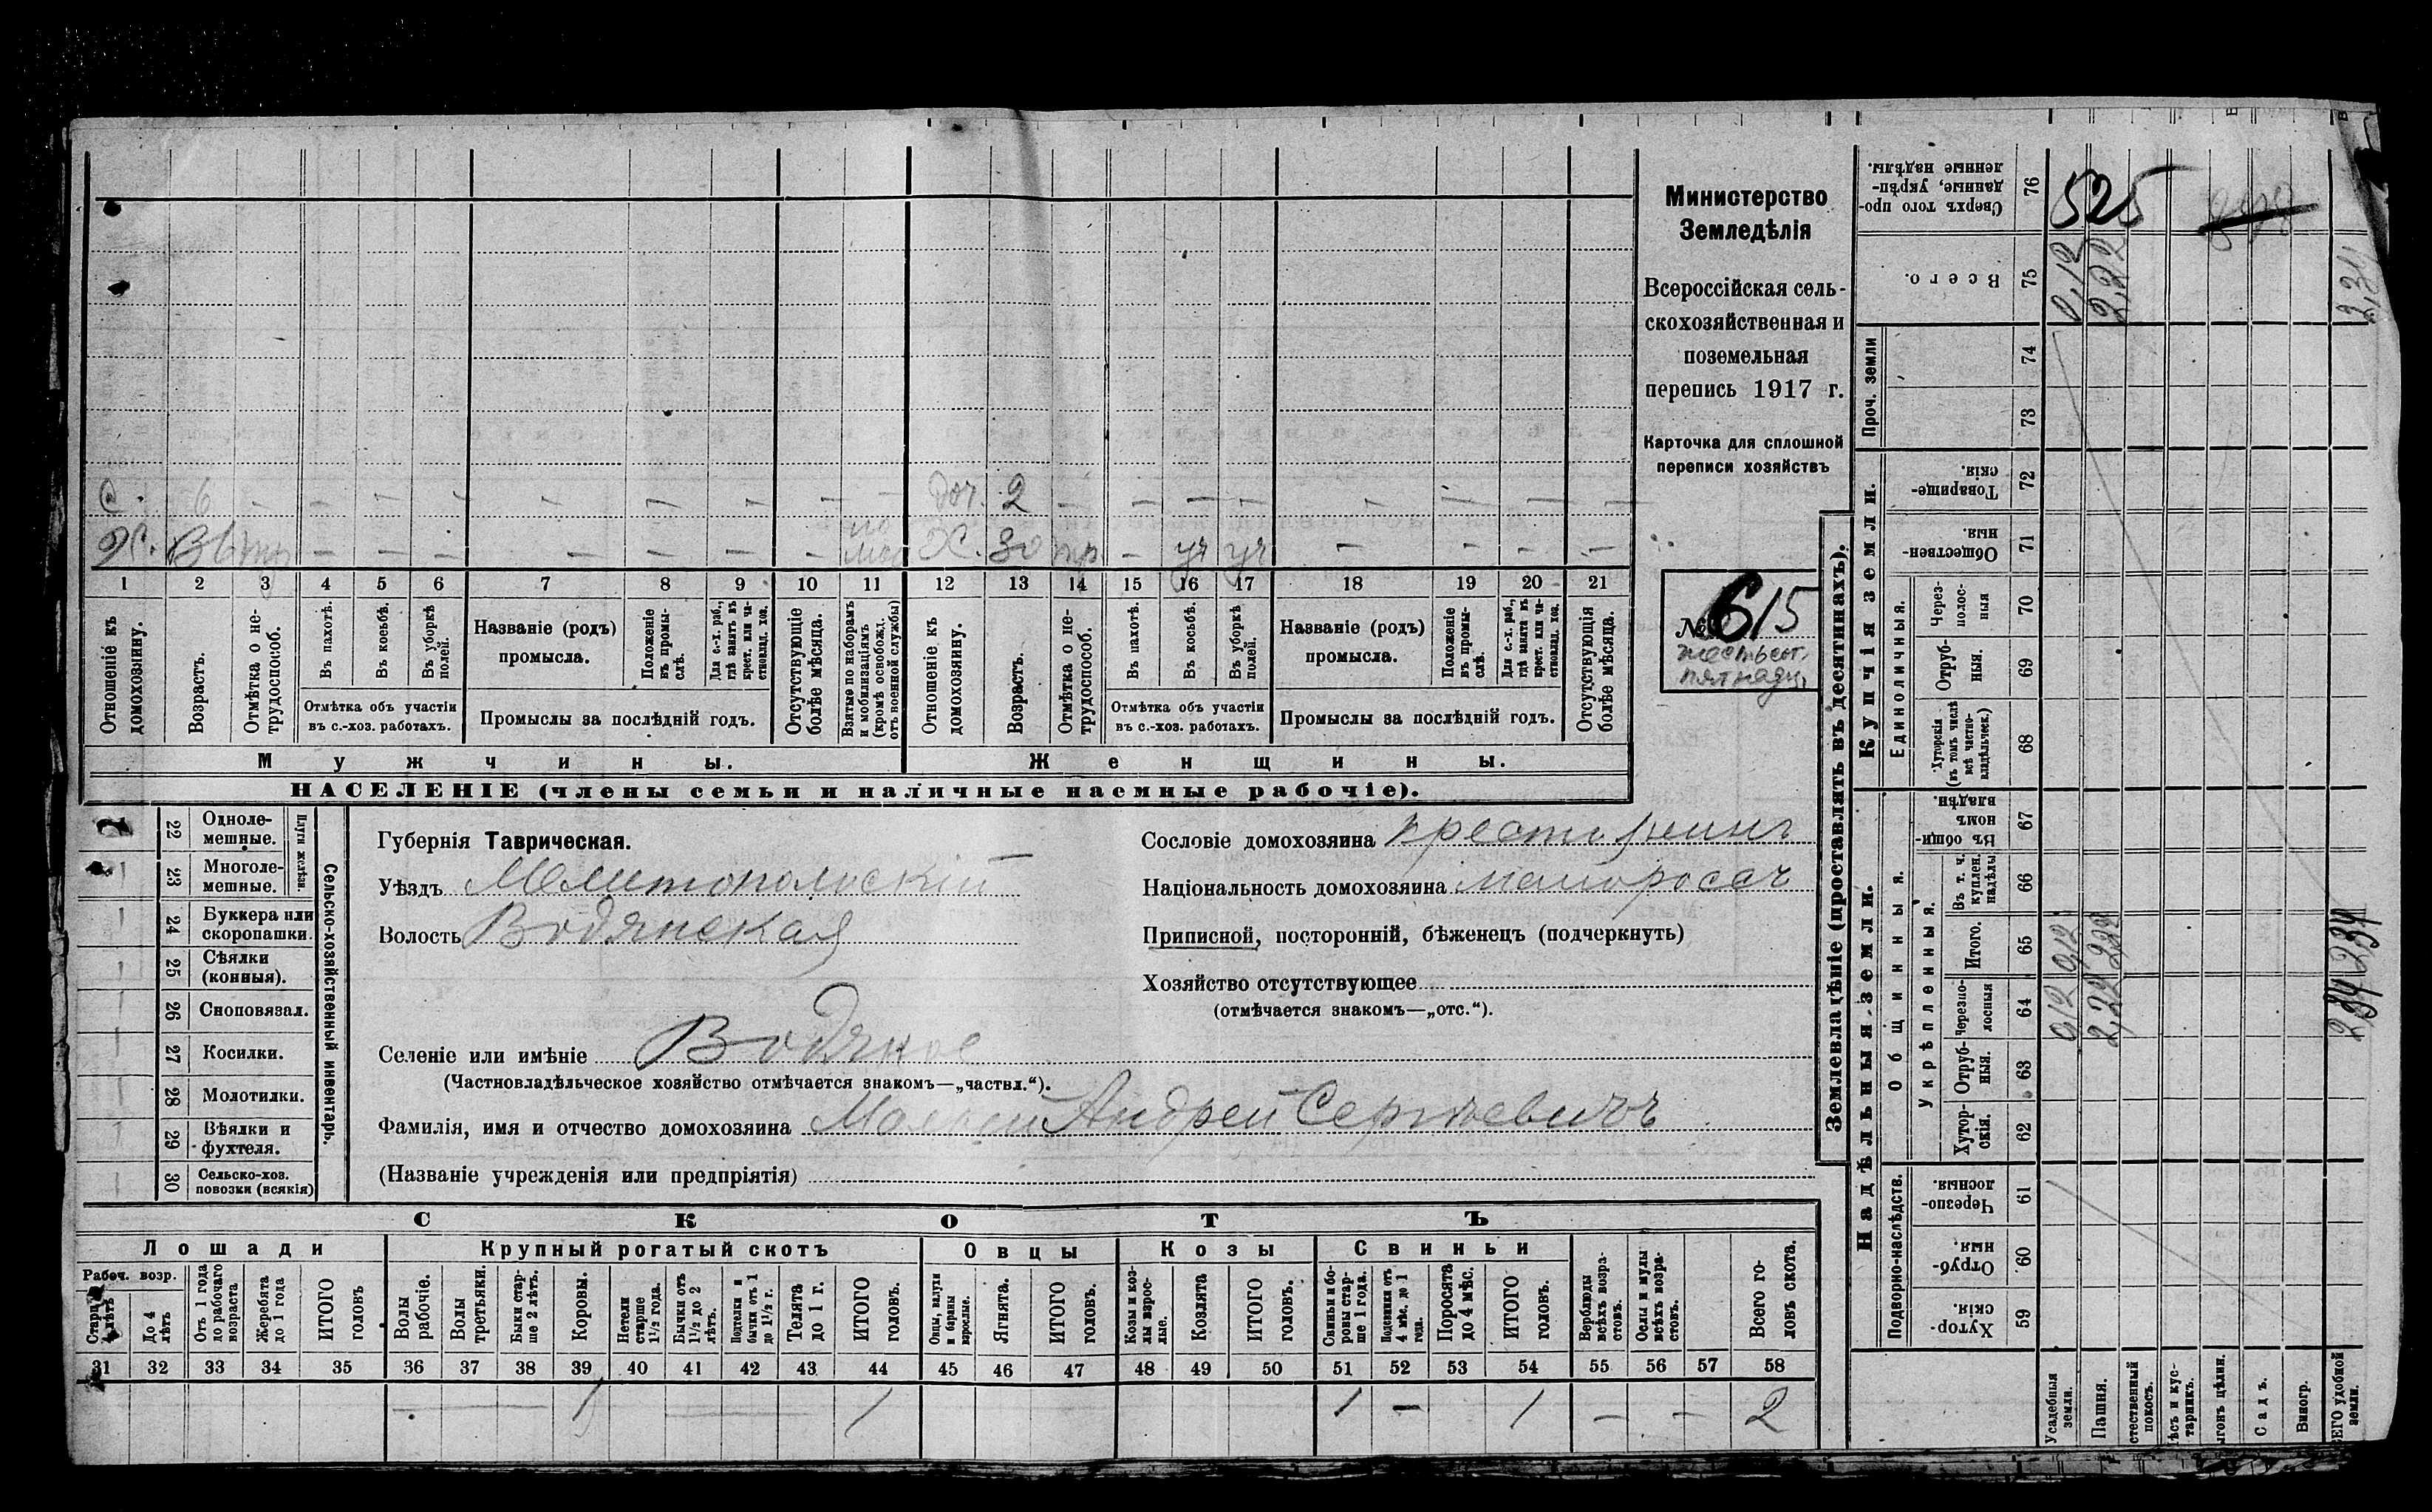 Министерство
Земледѣлія
Всероссійская сель-
скохозяйственная и
поземельная
перепись 1917 г.
Карточка для сплошной
переписи хозяйствъ
№ 615
шестьсот
пятнадц.
С. 6 — — — — — — — — — доч. 2 — — — — — — — —
Х. 36 тр — — — — — — — Х. 30 тр — уч уч — — — —
1 2 3 4 5 6 7 8 9 10 11 12 13 14 15 16 17 18 19 20 21
Отношеніе къ домохозяину.
Возрастъ.
Отмѣтка о не-трудоспособ.
Въ пахотѣ.
Въ косьбѣ.
Въ уборкѣ полей.
Отмѣтка объ участіи въ с.-хоз. работахъ.
Названіе (родъ) промысла.
Положеніе въ промы-слѣ.
Для с.-х. раб., гдѣ занятъ въ крест. или ча-ствовлад. хоз.
Промыслы за послѣдній годъ.
Отсутствующіе болѣе мѣсяца.
Взятые по наборамъ и мобилизаціямъ (кромѣ освобожд. отъ военной службы)
Отношеніе къ домохозяину.
Возрастъ.
Отмѣтка о не-трудоспособ.
Въ пахотѣ.
Въ косьбѣ.
Въ уборкѣ полей.
Отмѣтка объ участіи въ с.-хоз. работахъ.
Названіе (родъ) промысла.
Положеніе въ промы-слѣ.
Для с.-х. раб., гдѣ занята въ крест. или ча-ствовлад. хоз.
Промыслы за послѣдній годъ.
Отсутствующія болѣе мѣсяца.
Мужчины.
Женщины.
НАСЕЛЕНІЕ (члены семьи и наличные наемные рабочіе).
Сельско-хозяйственный инвентарь.
Плуги желѣзн
22 Одноле-мешные.
23 Многоле-мешные.
24 Буккера или скоропашки.
25 Сѣялки (конныя).
26 Сноповязал.
27 Косилки.
28 Молотилки.
29 Вѣялки и фухтеля.
30 Сельско-хоз. повозки (всякія)
Губернія Таврическая.
Уѣздъ Мелитопольскій
Волость Водянская
Селеніе или имѣніе Водяное
(Частновладѣльческое хозяйство отмѣчается знакомъ—„частвл.“).
Фамилія, имя и отчество домохозяина Андрей Сергѣевичъ
(Названіе учрежденія или предпріятія)
Сословіе домохозяина крестьянинъ
Національность домохозяина малороссъ
Приписной, посторонній, бѣженецъ (подчеркнуть)
Хозяйство отсутствующее
(отмѣчается знакомъ—„отс.“).
СКОТЪ
Лошади
Крупный рогатый скотъ
Овцы
Козы
Свиньи
Рабоч. возр.
Старше 4 лѣтъ
До 4 лѣтъ
Отъ 1 года до рабочаго возраста
Жеребята до 1 года
ИТОГО головъ
Волы рабочіе.
Волы третьяки.
Быки стар-ше 2 лѣтъ.
Коровы.
Нетели старше 1½ года.
Бычки отъ 1½ до 2 лѣтъ.
Подтелки и бычки отъ 1 до 1½ г.
Телята до 1 г.
ИТОГО головъ.
Овцы, валухи и бараны взрослые.
Ягнята.
ИТОГО головъ.
Козы и коз-лы взрос-лые.
Козлята
ИТОГО головъ.
Свиньи и бо-ровы стар-ше 1 года.
Подсвинки отъ 4 мѣс. до 1 года.
Поросята до 4 мѣс.
ИТОГО головъ.
Верблюды всѣхъ возра-стовъ.
Ослы и мулы всѣхъ возра-стовъ.
Всего го-ловъ скота.
31 32 33 34 35 36 37 38 39 40 41 42 43 44 45 46 47 48 49 50 51 52 53 54 55 56 57 58
1 1 1 — 1 — — 2
Землевладѣніе (проставлять въ десятинахъ).
Надѣльныя земли.
Купчія земли.
Проч. земли
Подворно-наслѣдств.
Общинныя.
Укрѣпленныя.
Единоличныя.
59 Хутор-скія
60 Отруб-ныя.
61 Черезпо-лосныя
62 Хутор-скія.
63 Отруб-ныя.
64 Черезпо-лосныя
65 Итого.
66 Въ т. ч. куплен. надѣлы
67 Въ общин-номъ владѣн.
68 Хуторскія (въ томъ числѣ всѣ частно-владѣльческ.)
69 Отруб-ныя.
70 Через-полос-ныя
71 Обществен-ныя
72 Товарище-скія.
73
74
75 Всего.
76 Сверхъ того про-данные, укрѣп-ленные надѣлы.
Усадебныя земли.
Пашня.
Садъ.
Виногр.
0,12 0,12 0,12
2,22 2,22 2,22
2,34 2,34 2,34
525